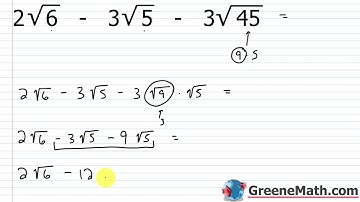 2√6 - 3√5 - 3√45 =
9 5
2√6 - 3√5 - 3√9 · √5 =
3
2√6 - 3√5 - 9√5 =
2√6 - 12
GreeneMath.com